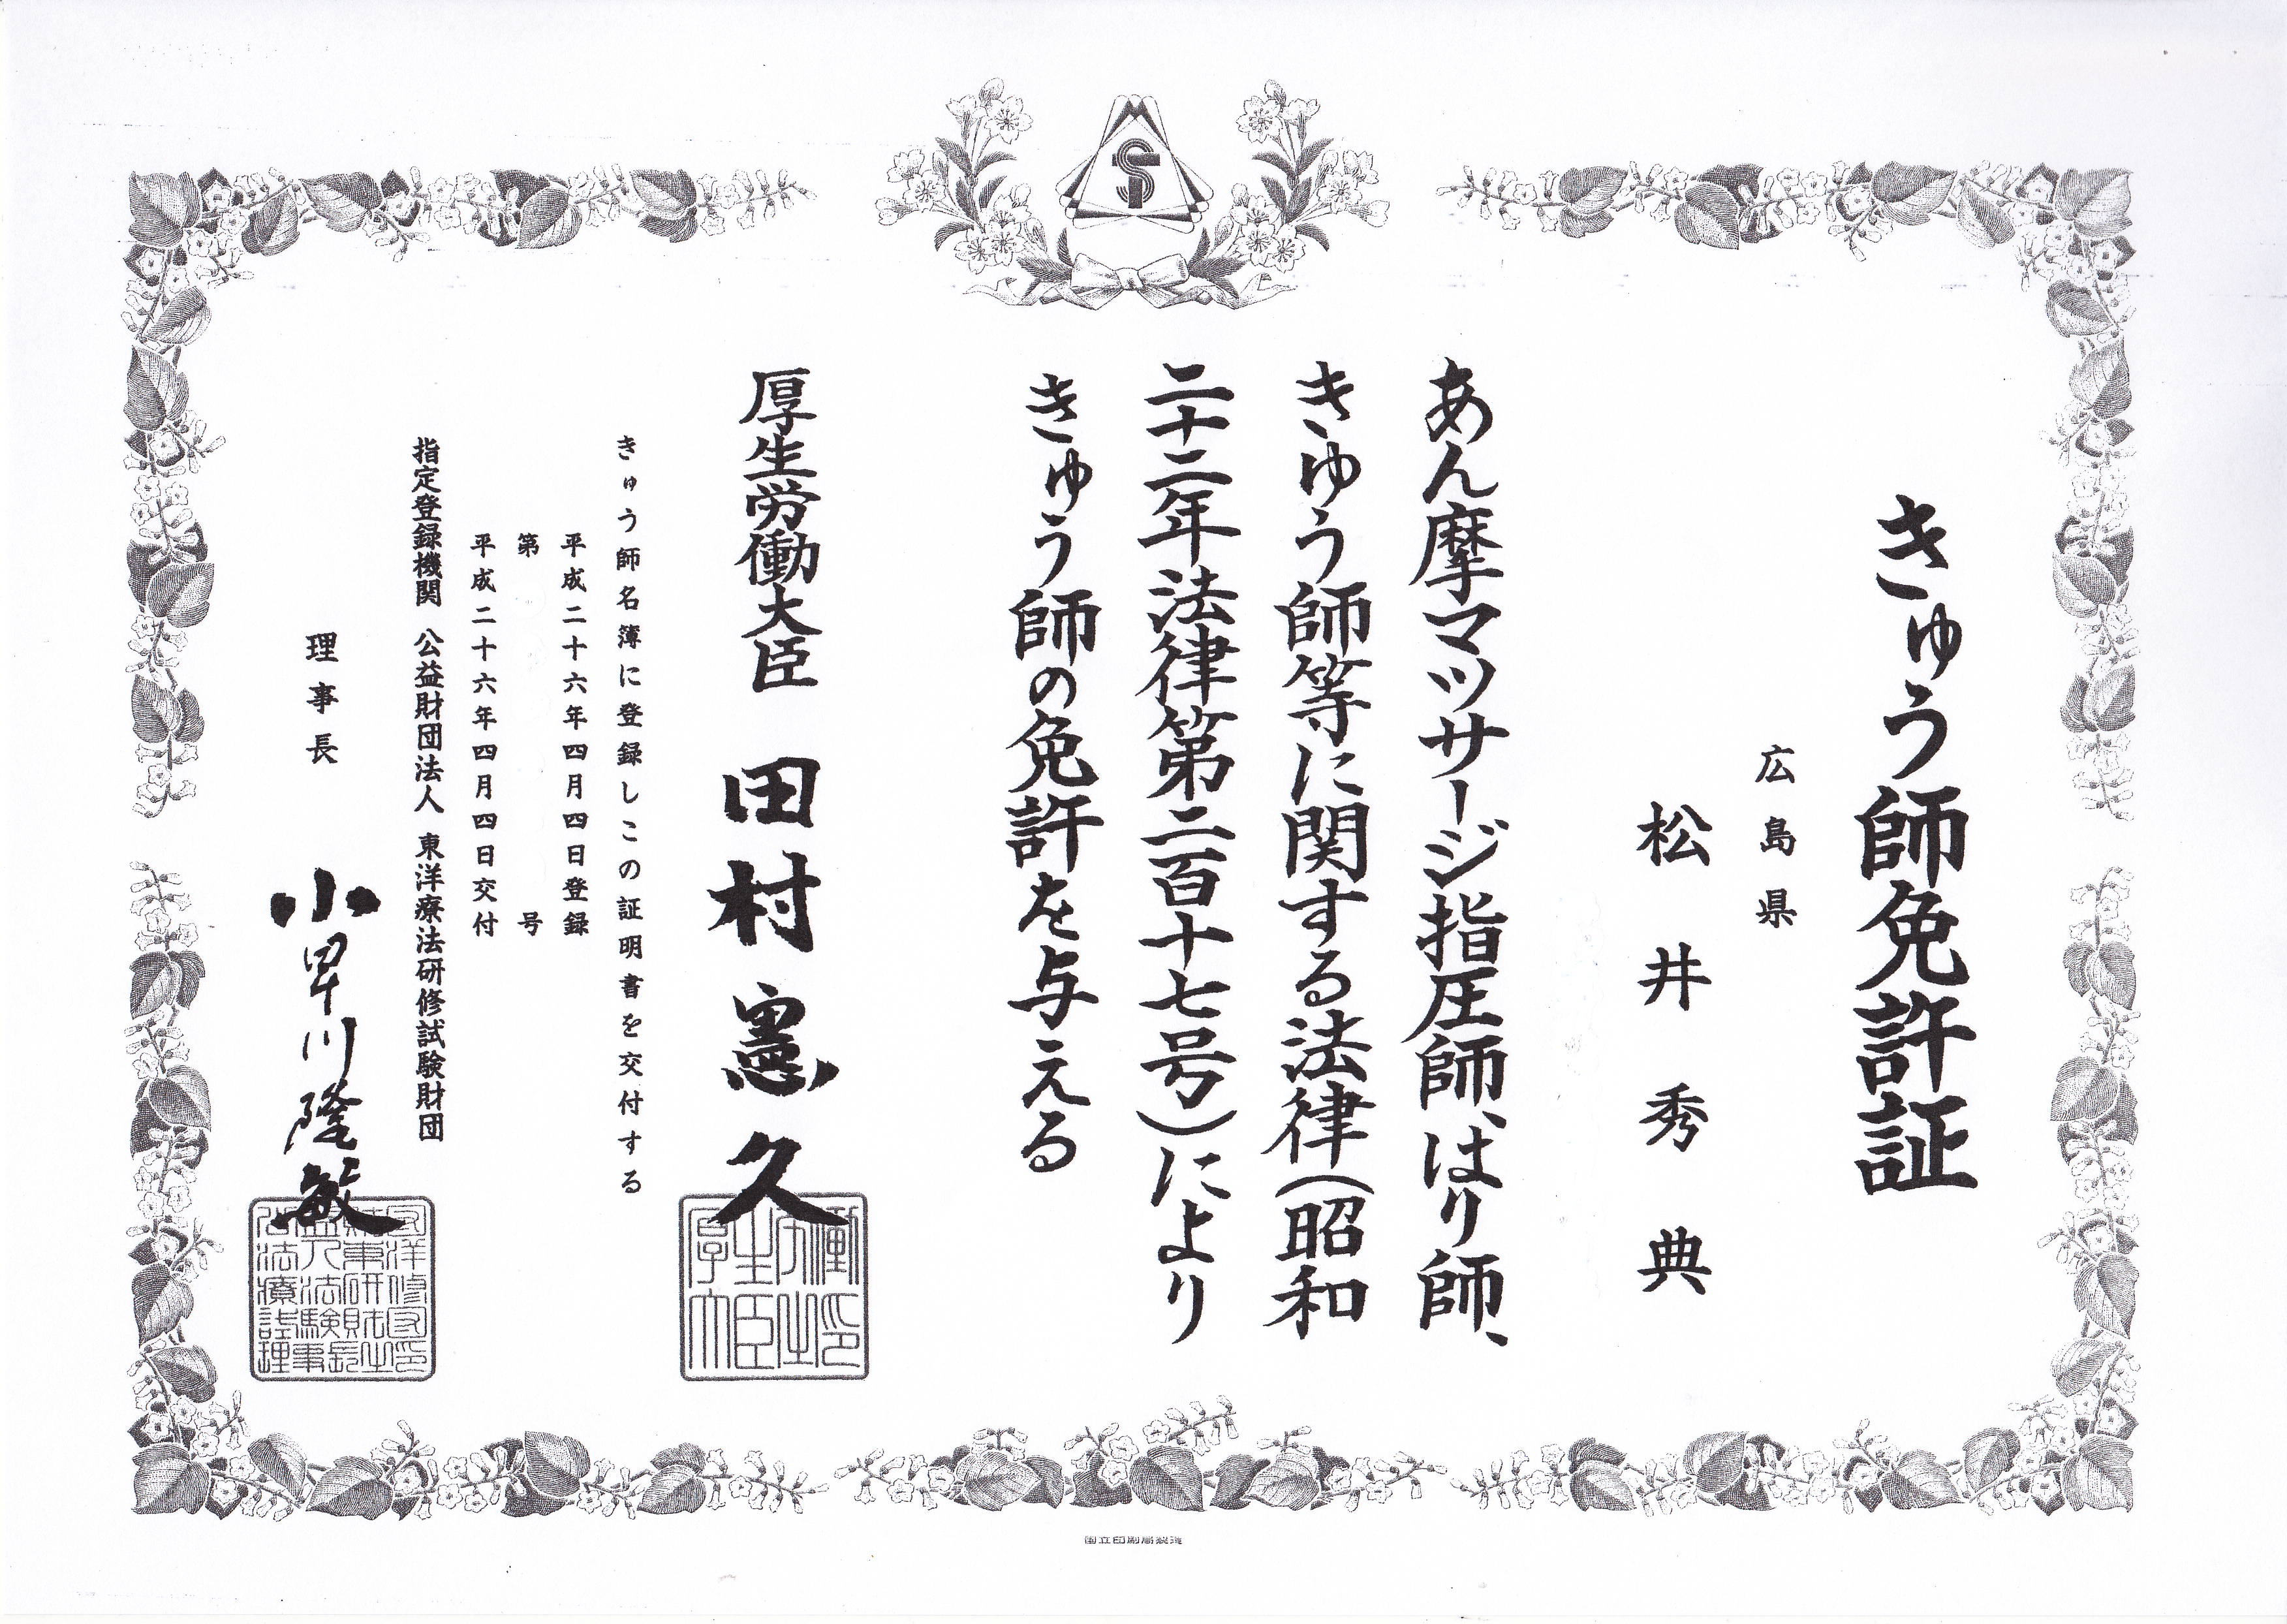 きゅう師免許証
広島県
松井秀典
あん摩マツサージ指圧師、はり師、
きゆう師等に関する法律(昭和
二十二年法律第二百十七号)により
きゅう師の免許を与える
厚生労働大臣 田村憲久
きゅう師名簿に登録しこの証明書を交付する
平成二十六年四月四日登録
第 号
平成二十六年四月四日交付
指定登録機関 公益財団法人 東洋療法研修試験財団
理事長 小早川隆敏
国立印刷局製造